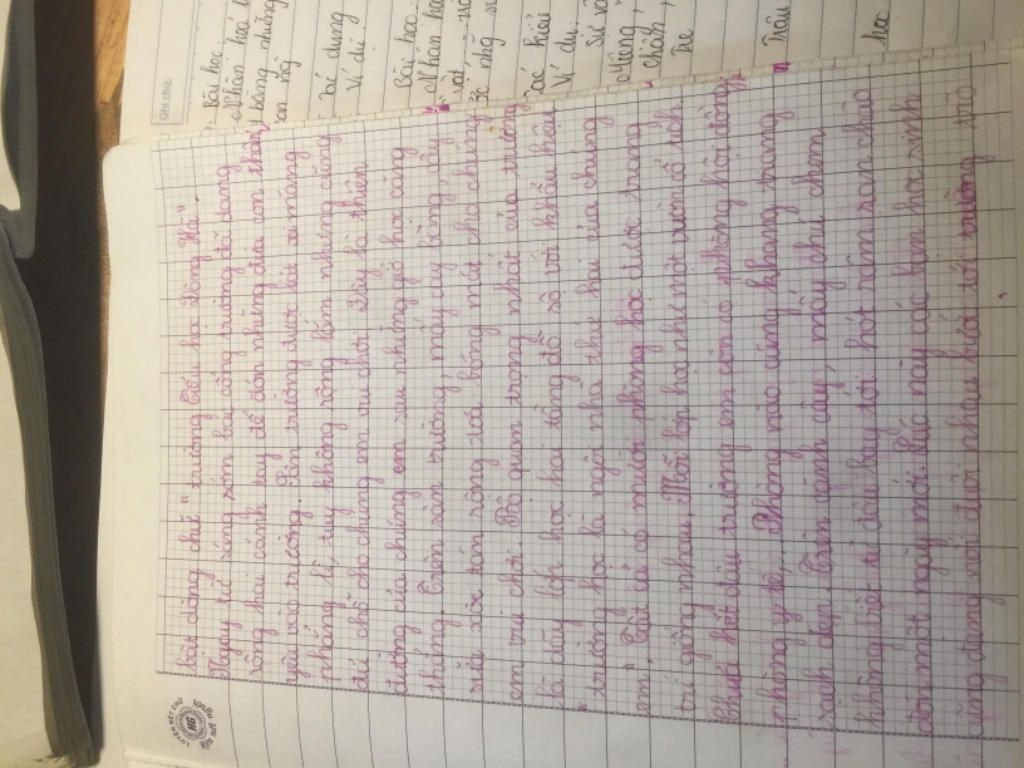 bật dòng chữ "trường Tiểu học Đông Hà".
Ngay từ sáng sớm bác cổng trường đã dang
rộng hai cánh tay để đón những đứa con thân
yêu vào trường. Sân trường được lát xi măng
phẳng lì, tuy không rộng lắm nhưng cũng
đủ chỗ cho chúng em vui chơi. Đây là thiên
đường của chúng em sau những giờ học căng
thẳng. Trên sân trường, mấy cây bàng, cây
sữa xòe tán rộng toả bóng mát cho chúng
em vui chơi. Bộ quan trọng nhất của trường
là dãy lớp học hai tầng đồ sộ với khẩu hiệu
"trường học là ngôi nhà thứ hai của chúng
em". Tất cả có mười phòng học được trang
trí giống nhau. Mỗi lớp học như một vườn cổ tích.
Chưa hết đâu trường em còn có phòng hội đồng,
phòng y tế,. Phòng nào cũng khang trang
sạch đẹp. Trên cành cây, mấy chú chim
không biết từ đâu bay tới hót râm ran chào
đón một ngày mới. Lúc này các bạn học sinh
cũng đang nối đuôi nhau bước tới trường
Ghi chú:
Bài học
Nhân hoá
bằng những
Tác dụng
Ví dụ
Bài học
Nhân hoá
Các kiểu
Ví dụ:
Tre
Trâu
học
LUYỆN NÉT CHỮ